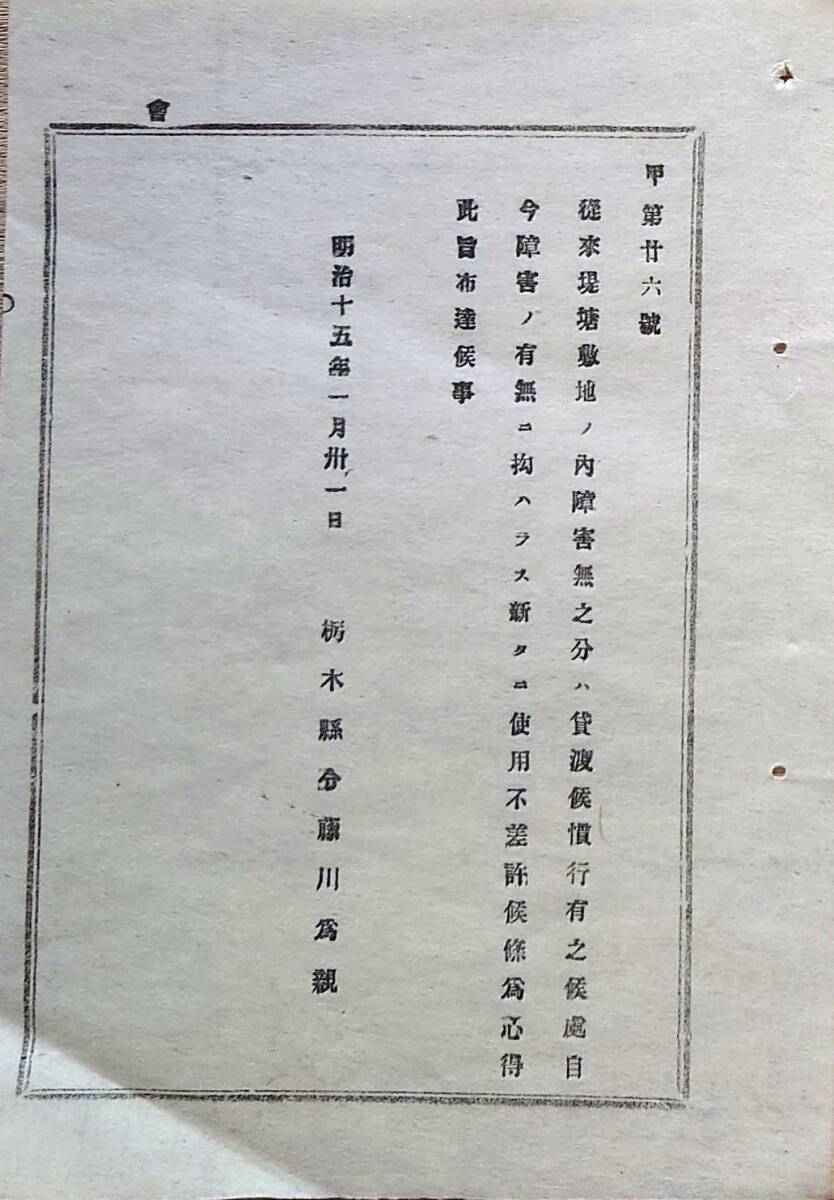 會
甲第廿六號
從來堤塘敷地ノ內障害無之分ハ貸渡候慣行有之候處自
今障害ノ有無ニ拘ハラス新タニ使用不差許候條爲心得
此旨布達候事
明治十五年一月卅一日
栃木縣令藤川爲親